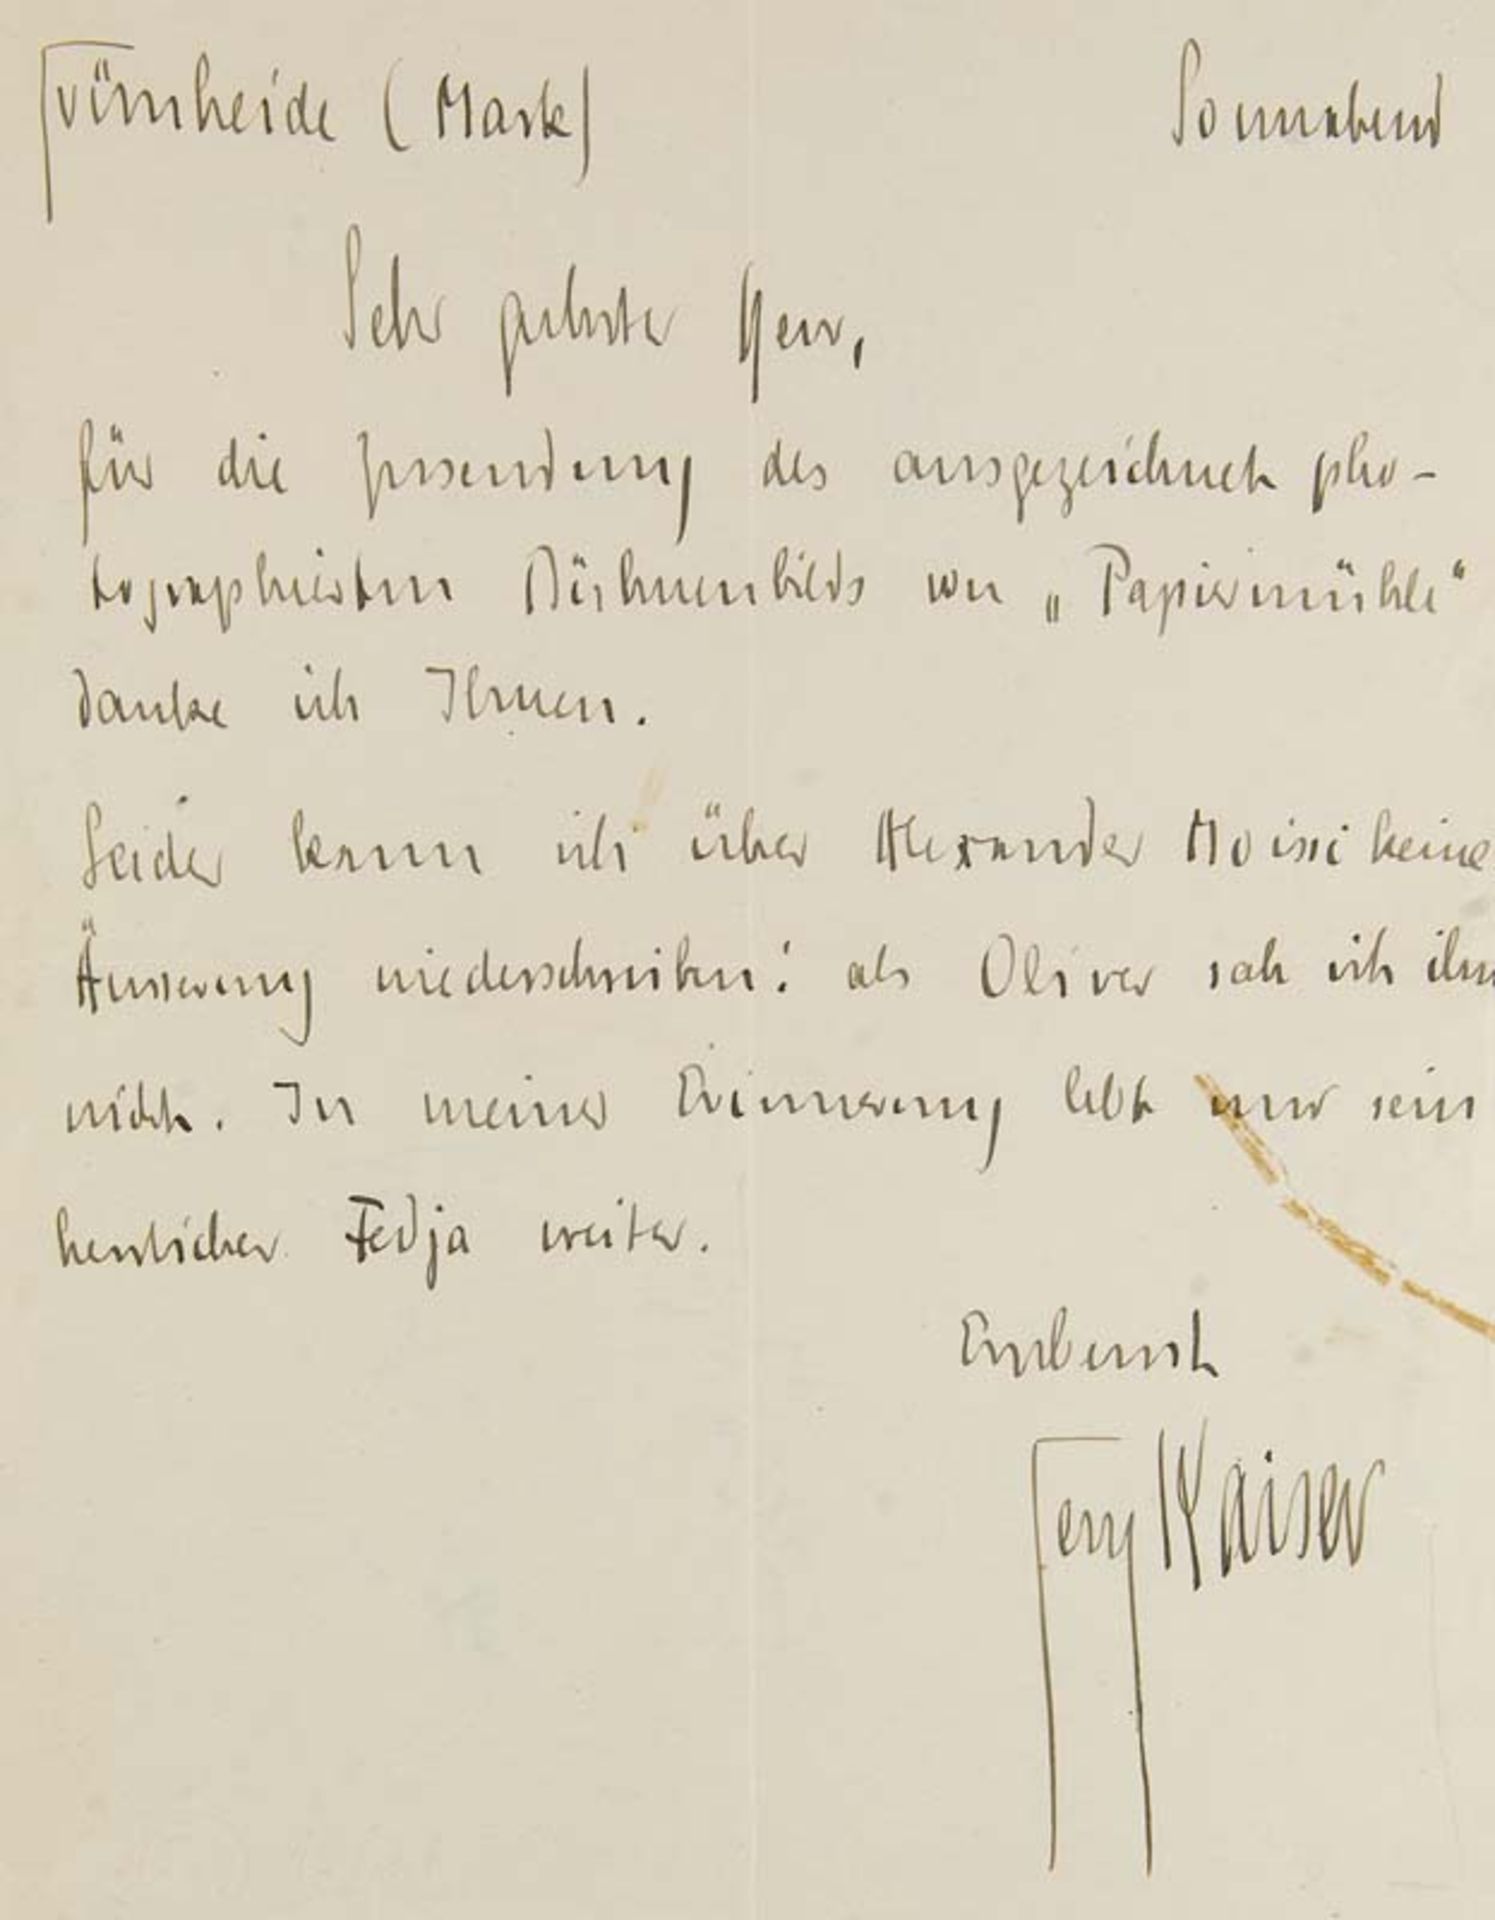 Grünheide (Mark) Sonnabend
Sehr geehrter Herr,
für die Zusendung des ausgezeichnet pho-
tographierten Bühnenbilds von „Papiermühle"
danke ich Ihnen.
Leider kann ich über Alexander Moissi keine
Äusserung niederschreiben: als Oliver sah ich ihn
nicht. In meiner Erinnerung lebt nur sein
herrlicher Fedja weiter.
Ergebenst
Georg Kaiser